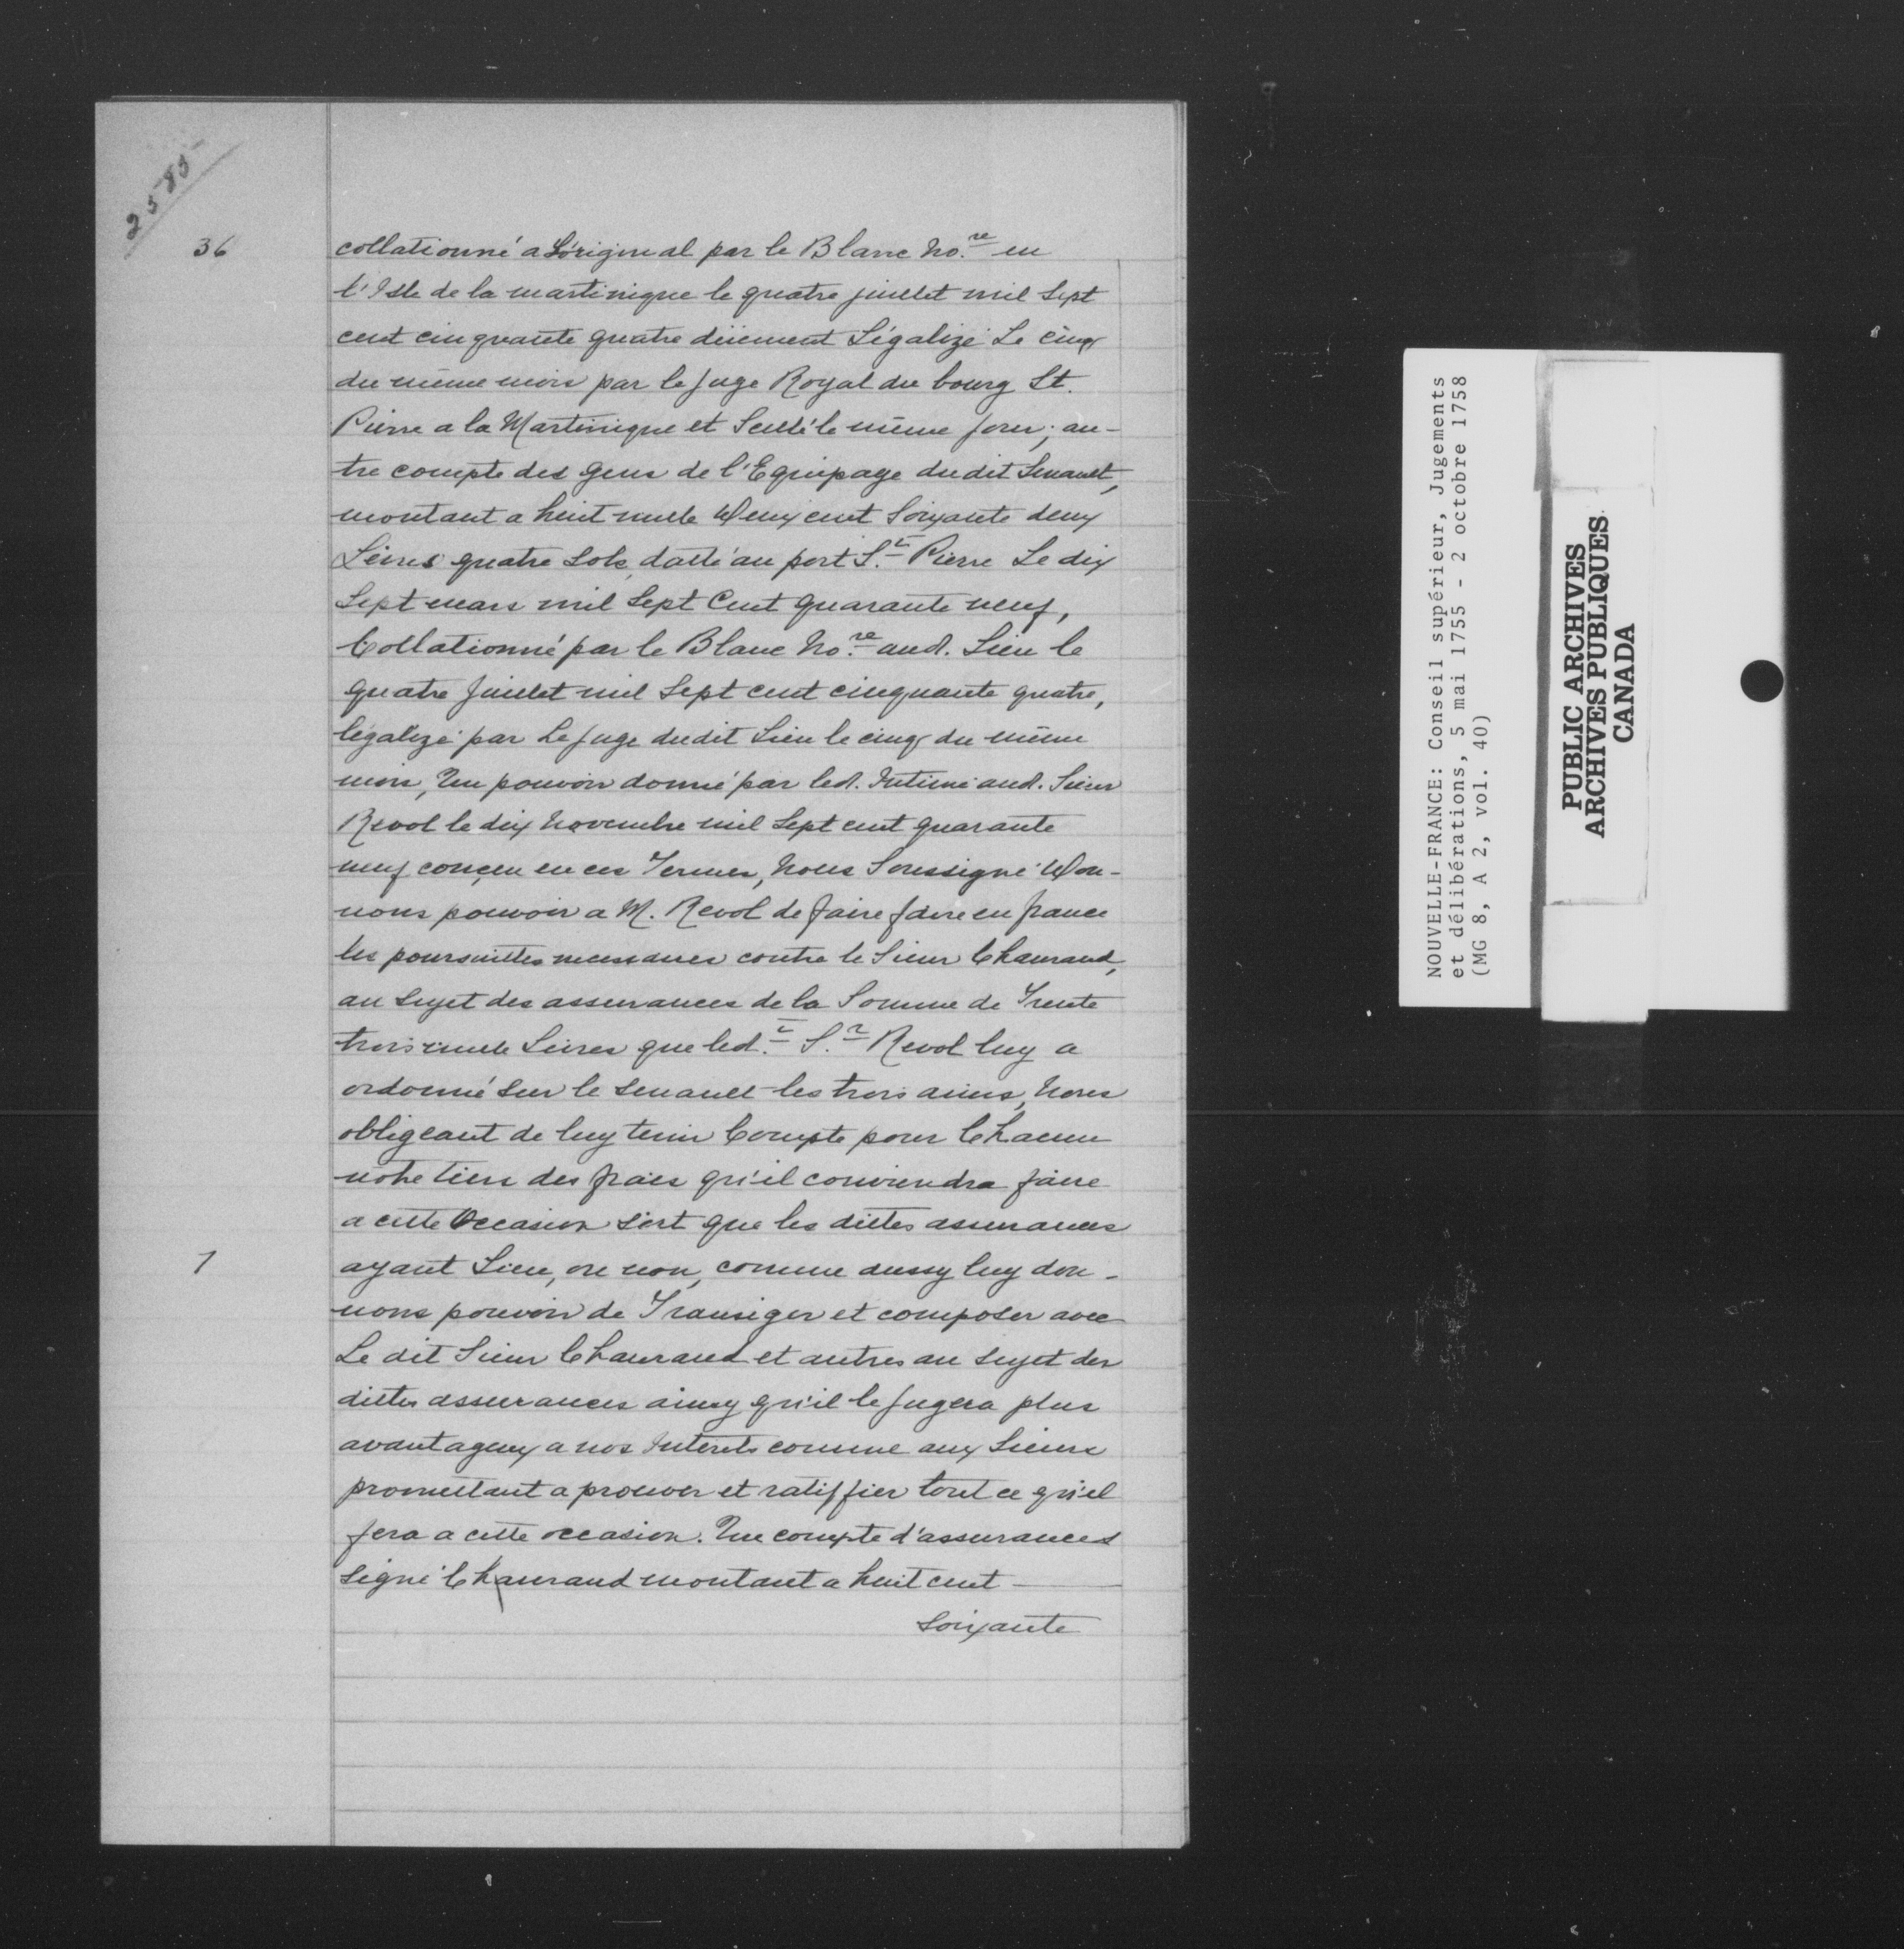 2585
36
collationné a Lóriginal par le Blanc No.re en
l'Isle de la martinique le quatre juillet mil Sept
cent cinquante quatre düement Légalizé Le cinq
du même mois par le Juge Royal du bourg St.
Pierre a la Martinique et Scellé le même jour; au-
tre compte des gens de l'Equipage du dit Senault,
montant a huit mille Deux cent Soixante deux
Livres quatre Sols, datté au port St. Pierre Le dix
Sept mars mil Sept Cent quarante neuf,
Collationné par le Blanc No.re aud. Lieu le
quatre Juillet mil Sept cent cinquante quatre,
légalizé par Le Juge du dit Lieu le cinq du même
mois, Un pouvoir donné par led. Intimé aud. Sieur
Revol le dix Novembre mil Sept cent quarante
neuf conçeu en ces Termes, Nous Soussigné Don-
nons pouvoir a M. Revol de faire faire en france
les poursuittes necessaires contre le Sieur Chauraud,
au Sujet des assurances de la Somme de Trente
trois mille Livres que led.t S.r Revol luy a
ordonné Sur le Senault les trois amis, Nous
obligeant de luy tenir Compte pour Chacun
notre tiers des frais qu'il conviendra faire
a cette Occasion S'ert que les dittes assurances
7
ayant Lieu, ou non, comme aussy luy don-
nons pouvoir de Transiger et composer avec
Le dit Sieur Chauraud et autres au Sujet des
dittes assurances ainsy qu'il le Jugera plus
avantageux a nos Interets comme aux Siens
promettant a prouver et ratiffier tout ce qu'il
fera a cette occasion. Un compte d'assurances
Signé Chauraud montant a huit cent
Soixante
NOUVELLE-FRANCE: Conseil supérieur, Jugements
et délibérations, 5 mai 1755 - 2 octobre 1758
(MG 8, A 2, vol. 40)
PUBLIC ARCHIVES
ARCHIVES PUBLIQUES
CANADA